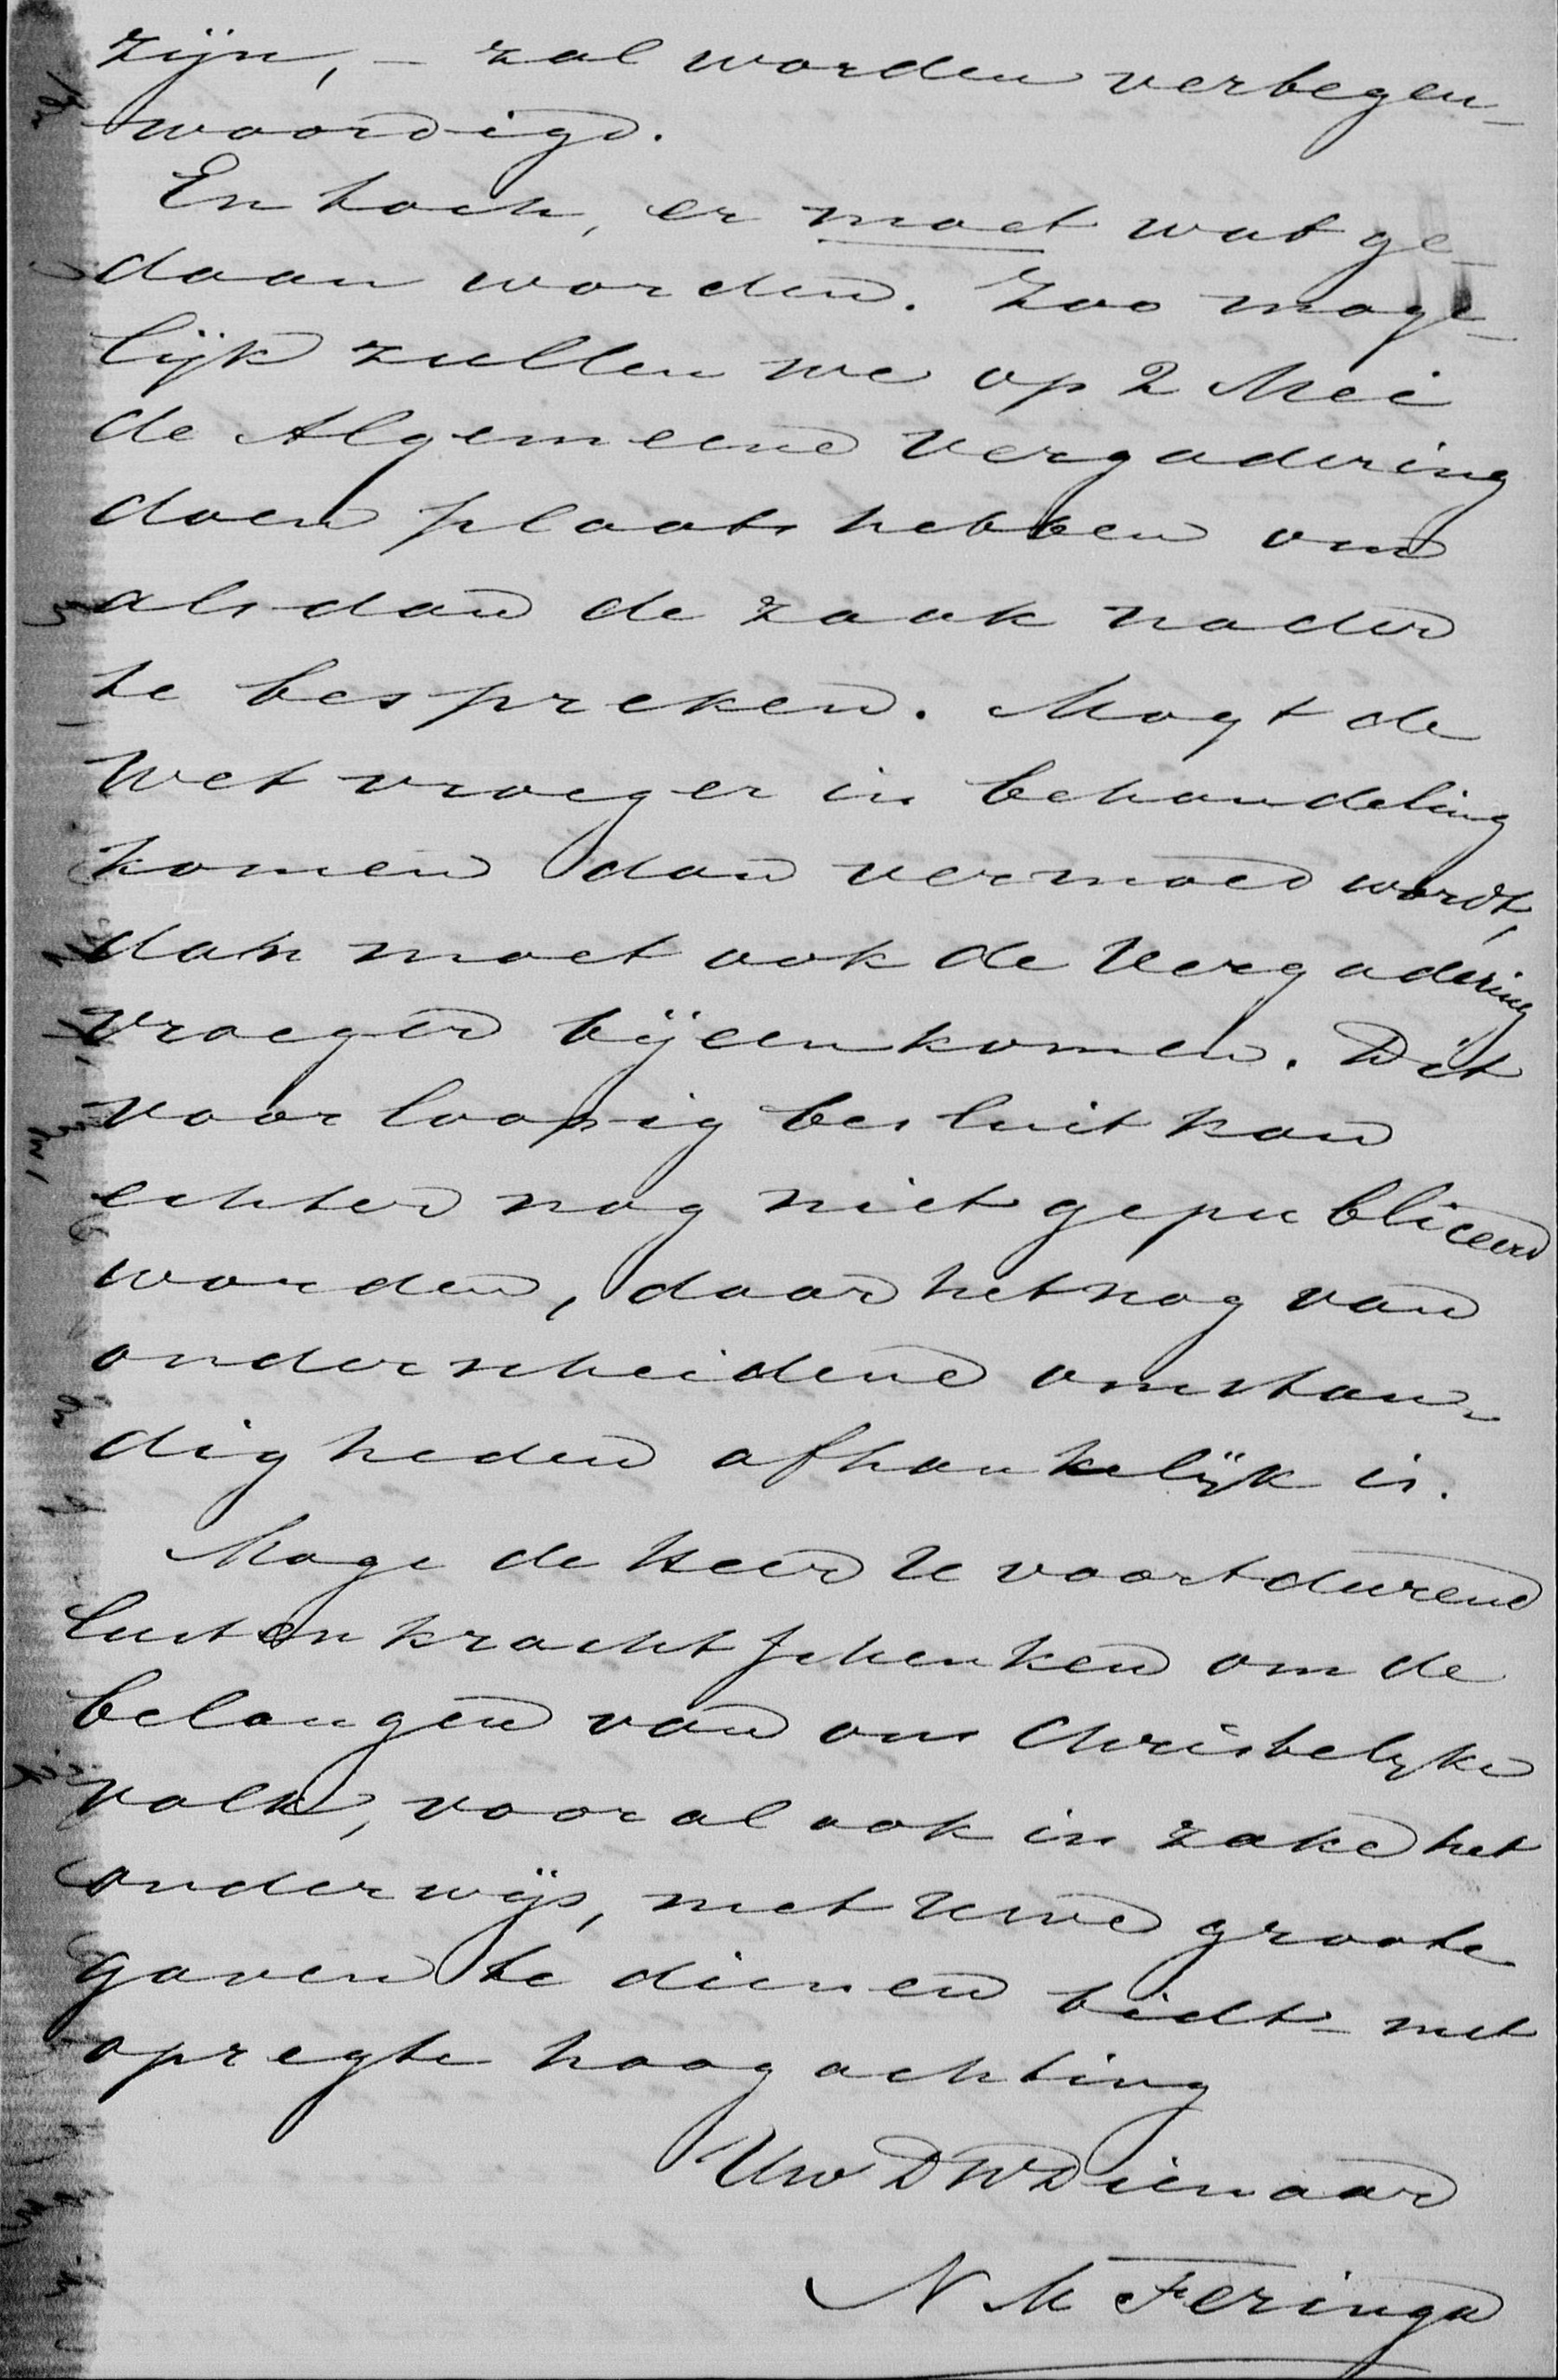 zijn, – zal worden vertegen-
woordigd.
En toch, er moet wat ge-
daan worden. Zoo moge-
lijk zullen we op 2 Mei
de Algemeene Vergadering
doen plaats hebben om
alsdan de zaak nader
te bespreken. Mogt de
Wet vroeger in behandeling
komen dan vermoed wordt,
dan moet ook de Vergadering
vroeger bijeenkomen. Dit
voorloopig besluit kan
echter nog niet gepubliceerd
worden, daar het nog van
onderscheidene omstan-
digheden afhankelijk is.
Moge de Heer U voortdurend
lust en kracht schenken om de
belangen van ons Christelyke
volk, vooral ook in zake het
onderwijs, met Uwe groote
gaven te dienen bidt met
opregte hoogachting
Uw DWDienaar
N M Feringa